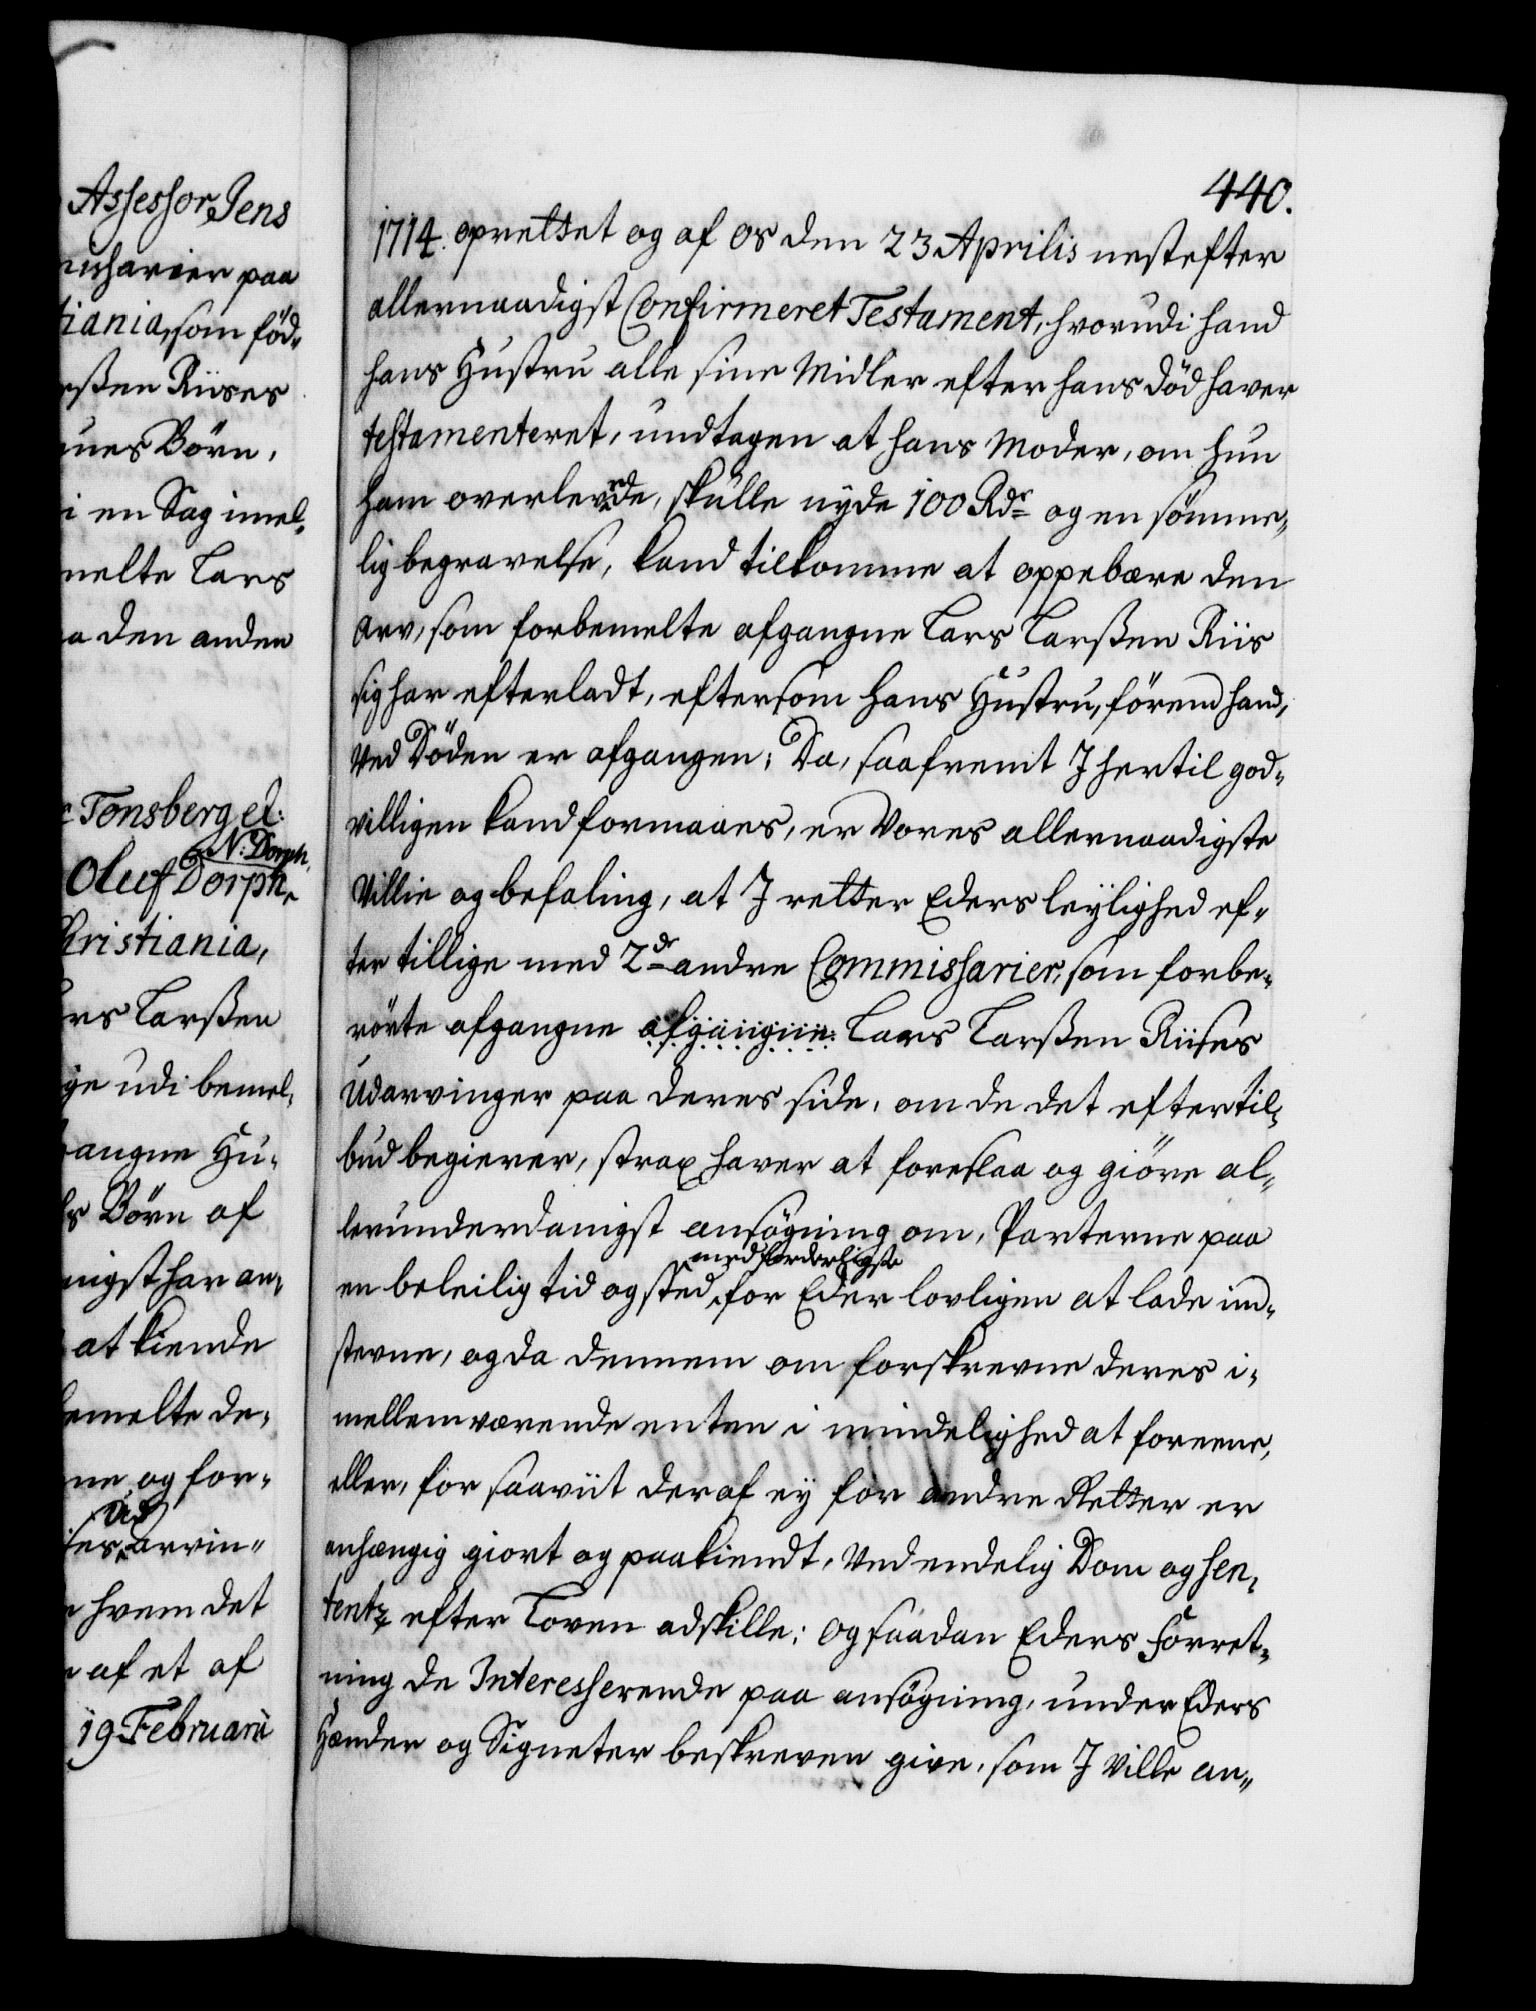 Assessor Jens
missarier paa
tiania, som fød-
rßen Riises
gnes Børn,
i en Sag imel-
melte Lars
a den anden
Tonsberg et:
N: Dorph,
Oluf Dorph,
hristiania,
ars Larßen
ge udi bemel-
gangne Hu-
Børn af
nigst har an-
at kiende
bemelte de-
ne og for-
Ud
ises arvin-
hvem det
af et af
19 Februarii
440.
1714. oprettet og af os den 23 Aprilis nestefter
allernaadigst Confirmeret Testament, hvorudi hand
hans Hustru alle sine Midler efter hans død haver
testamenteret, undtagen at hans Moder, om hun
ham overlevede, skulle nyde 100 Rdr og en sømme-
lig begravelse, kand tilkomme at oppebære den
Arv, som forbemelte afgangne Lars Larßen Riis
sig har efterladt, eftersom hans Hustru, førend hand,
ved Døden er afgangen; Da, saafremt I hertil god-
villigen kand formaaes, er Vores allernaadigste
Villie og befaling, at I retter Eders leylighed ef-
ter tillige med 2de andre Commissarier, som forbe-
rørte afgangne afgangne Lars Larßen Riises
Udarvinger paa deres side, om de det efter til-
bud begierer, strax haver at foreslaa og giøre al-
lerunderdanigst ansøgning om, Parterne paa
med forderligste
en beleilig tid og sted, for Eder lovligen at lade ind-
stevne, og da dennem om forskrevne deres i-
mellemværende enten i mindelighed at foreene,
eller, for saaviit deraf ey for andre Retter er
anhængig giort og paakiendt, ved endelig Dom og Sen-
tentz efter Loven adskille; og saadan Eders Forret-
ning de Interesserende paa ansøgning, under Eders
Hænder og Signeter beskreven give, som I ville an-